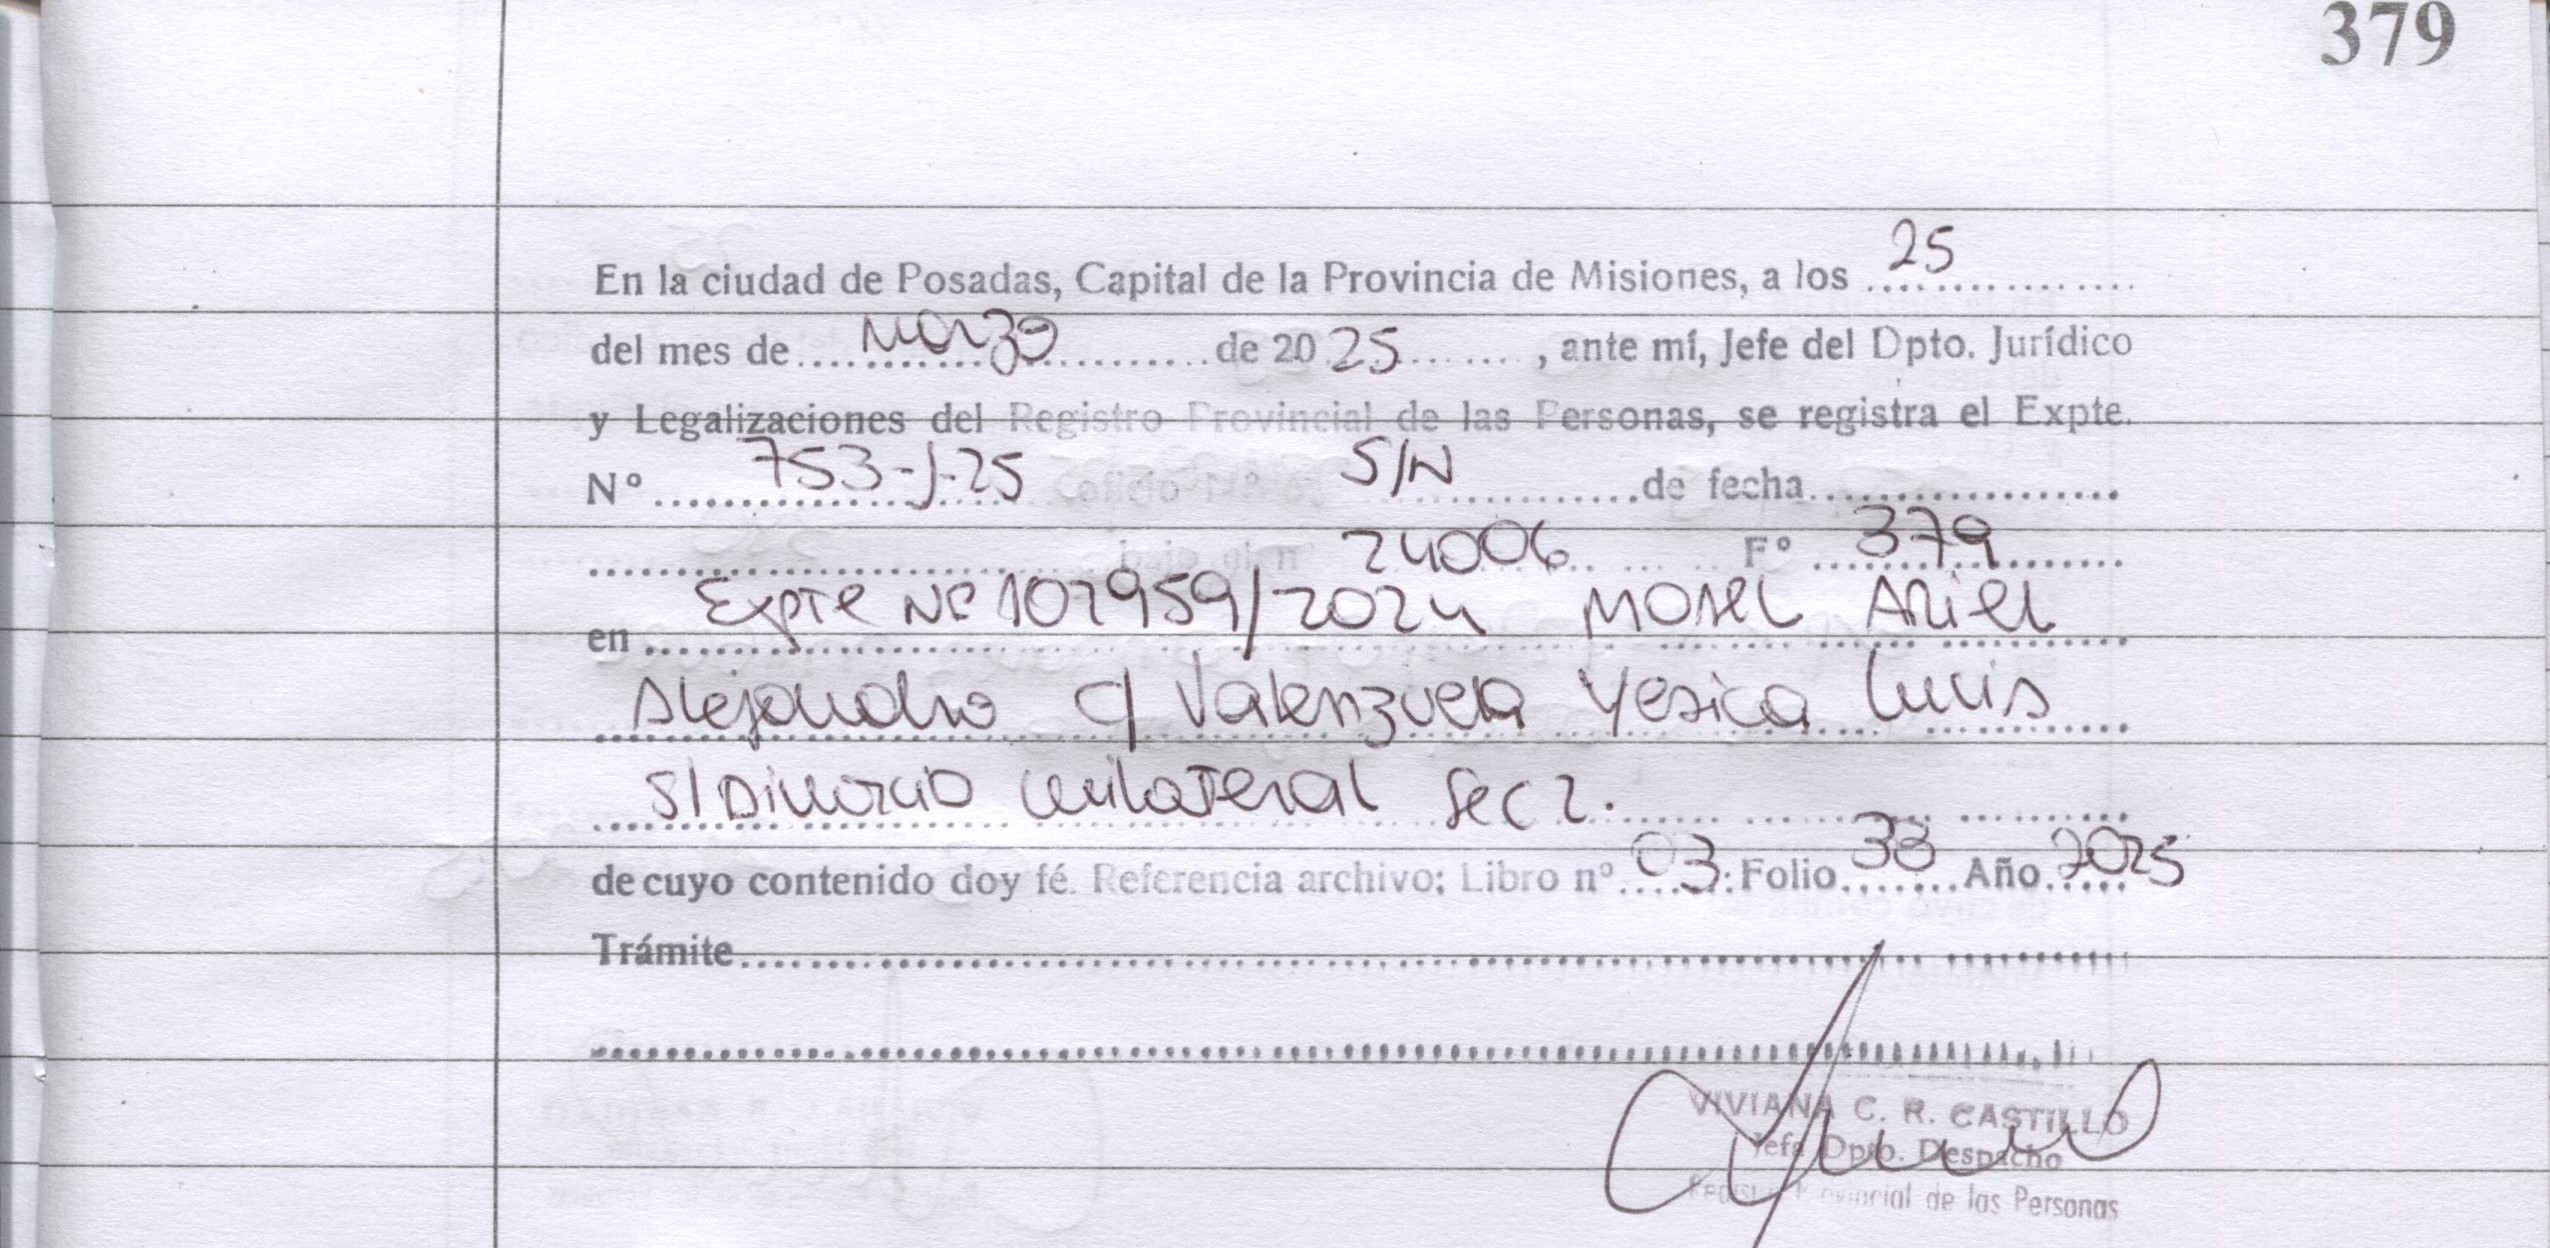 379
En la ciudad de Posadas, Capital de la Provincia de Misiones, a los 25
del mes de Marzo de 2025, ante mí, Jefe del Dpto. Jurídico
y Legalizaciones del Registro Provincial de las Personas, se registra el Expte.
Nº 753-J-25 oficio Nº S/N de fecha
bajo el n 24006 Fº 379
en Expte Nº 107959/2024 Morel Ariel
Alejandro c/ Valenzuela Yesica
S/Divorcio unilateral Sec 2.
de cuyo contenido doy fé. Referencia archivo; Libro nº 03: Folio 38 Año 2025
Trámite
VIVIANA C. R. CASTILLO
Jefa Dpto. Despacho
Registro Provincial de las Personas